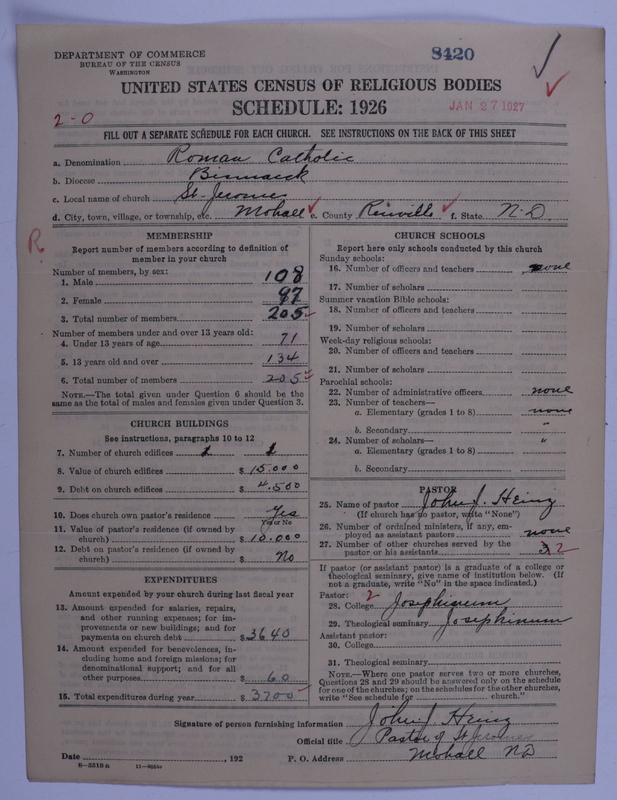 DEPARTMENT OF COMMERCE
BUREAU OF THE CENSUS
WASHINGTON
8420
UNITED STATES CENSUS OF RELIGIOUS BODIES
SCHEDULE: 1926
JAN 27 1927
2-0
FILL OUT A SEPARATE SCHEDULE FOR EACH CHURCH. SEE INSTRUCTIONS ON THE BACK OF THIS SHEET
a. Denomination Roman Catholic
b. Diocese Bismarck
c. Local name of church St. Jeromes
d. City, town, village, or township, etc. Mohall e. County Renville f. State N-D.
R
MEMBERSHIP
Report number of members according to definition of member in your church
Number of members, by sex:
1. Male 108
2. Female 97
3. Total number of members 205
Number of members under and over 13 years old:
4. Under 13 years of age 71
5. 13 years old and over 134
6. Total number of members 205
NOTE.—The total given under Question 6 should be the
same as the total of males and females given under Question 3.
CHURCH BUILDINGS
See instructions, paragraphs 10 to 12
7. Number of church edifices 1 1
8. Value of church edifices $ 15.000
9. Debt on church edifices $ 4.500
10. Does church own pastor's residence Yes
Yes or No
11. Value of pastor's residence (if owned by
church) $ 10.000
12. Debt on pastor's residence (if owned by
church) $ No
EXPENDITURES
Amount expended by your church during last fiscal year
13. Amount expended for salaries, repairs,
and other running expenses; for im-
provements or new buildings; and for
payments on church debt $ 3640
14. Amount expended for benevolences, in-
cluding home and foreign missions; for
denominational support; and for all
other purposes $ 60
15. Total expenditures during year $ 3700
CHURCH SCHOOLS
Report here only schools conducted by this church
Sunday schools:
16. Number of officers and teachers none
17. Number of scholars
Summer vacation Bible schools:
18. Number of officers and teachers
19. Number of scholars
Week-day religious schools:
20. Number of officers and teachers
21. Number of scholars
Parochial schools:
22. Number of administrative officers none
23. Number of teachers—
a. Elementary (grades 1 to 8) none
b. Secondary "
24. Number of scholars— "
a. Elementary (grades 1 to 8)
b. Secondary
PASTOR
25. Name of pastor John J. Heinz
(If church has no pastor, write "None")
26. Number of ordained ministers, if any, em-
ployed as assistant pastors none
27. Number of other churches served by the
pastor or his assistants 2
If pastor (or assistant pastor) is a graduate of a college or
theological seminary, give name of institution below. (If
not a graduate, write "No" in the space indicated.)
Pastor: 2
28. College Josephinum
29. Theological seminary Josephinum
Assistant pastor:
30. College
31. Theological seminary
NOTE.—Where one pastor serves two or more churches,
Questions 28 and 29 should be answered only on the schedule
for one of the churches; on the schedules for the other churches,
write "See schedule for church."
Signature of person furnishing information John J. Heinz
Official title Pastor of St Jeromes
Date , 192 P. O. Address Mohall ND